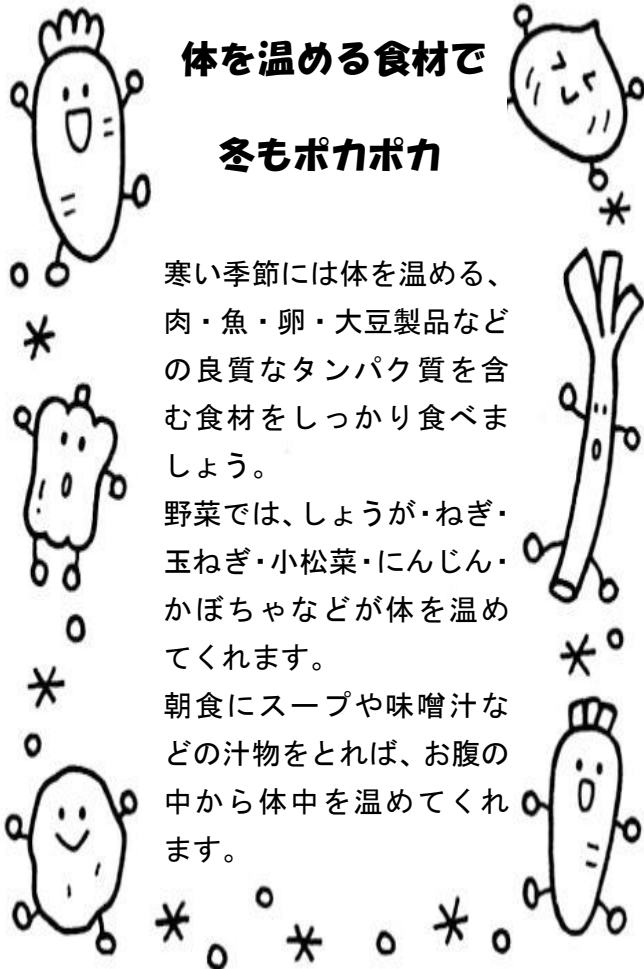 体を温める食材で
冬もポカポカ
寒い季節には体を温める、
肉・魚・卵・大豆製品など
の良質なタンパク質を含
む食材をしっかり食べま
しょう。
野菜では、しょうが・ねぎ・
玉ねぎ・小松菜・にんじん・
かぼちゃなどが体を温め
てくれます。
朝食にスープや味噌汁な
どの汁物をとれば、お腹の
中から体中を温めてくれ
ます。